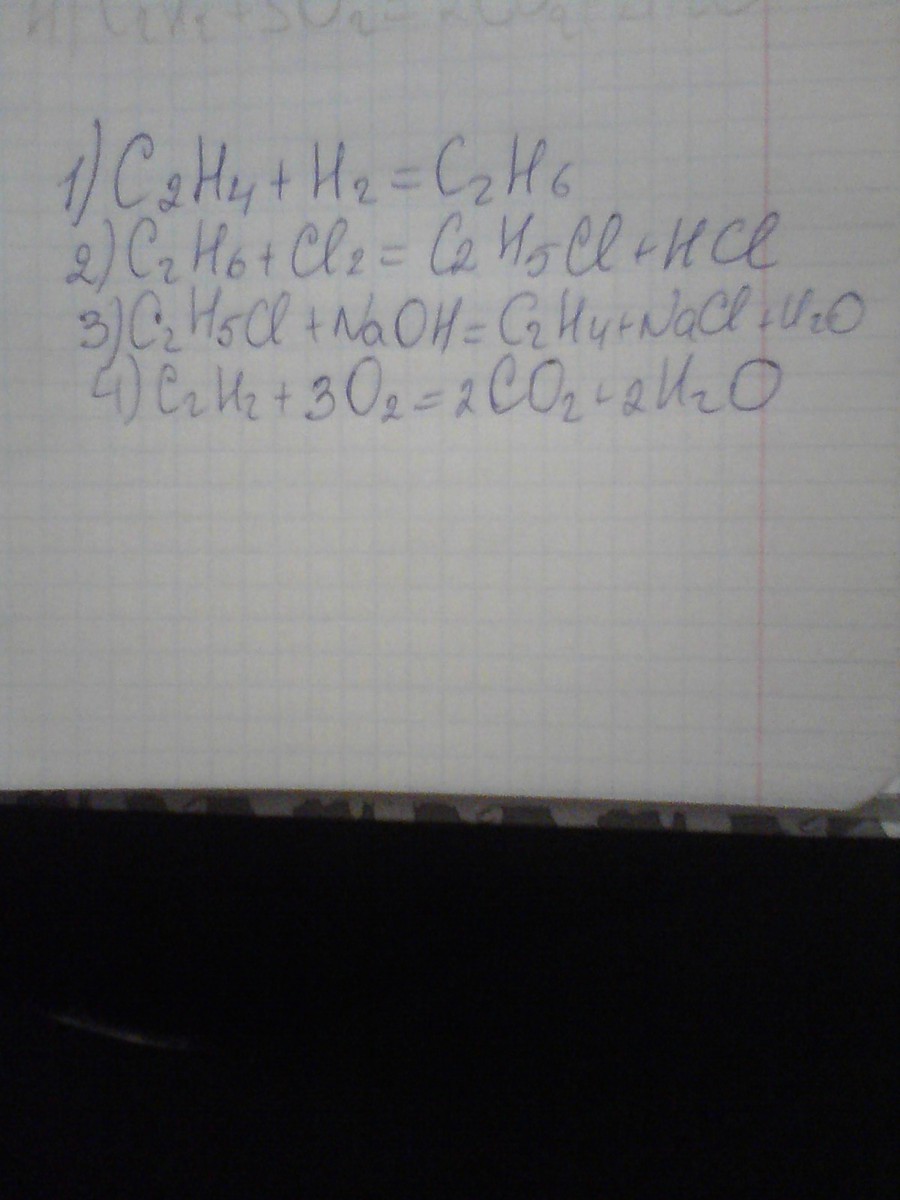 1) C₂H₄ + H₂ = C₂H₆
2) C₂H₆ + Cl₂ = C₂H₅Cl + HCl
3) C₂H₅Cl + NaOH = C₂H₄ + NaCl + H₂O
4) C₂H₂ + 3O₂ = 2CO₂ - 2H₂O